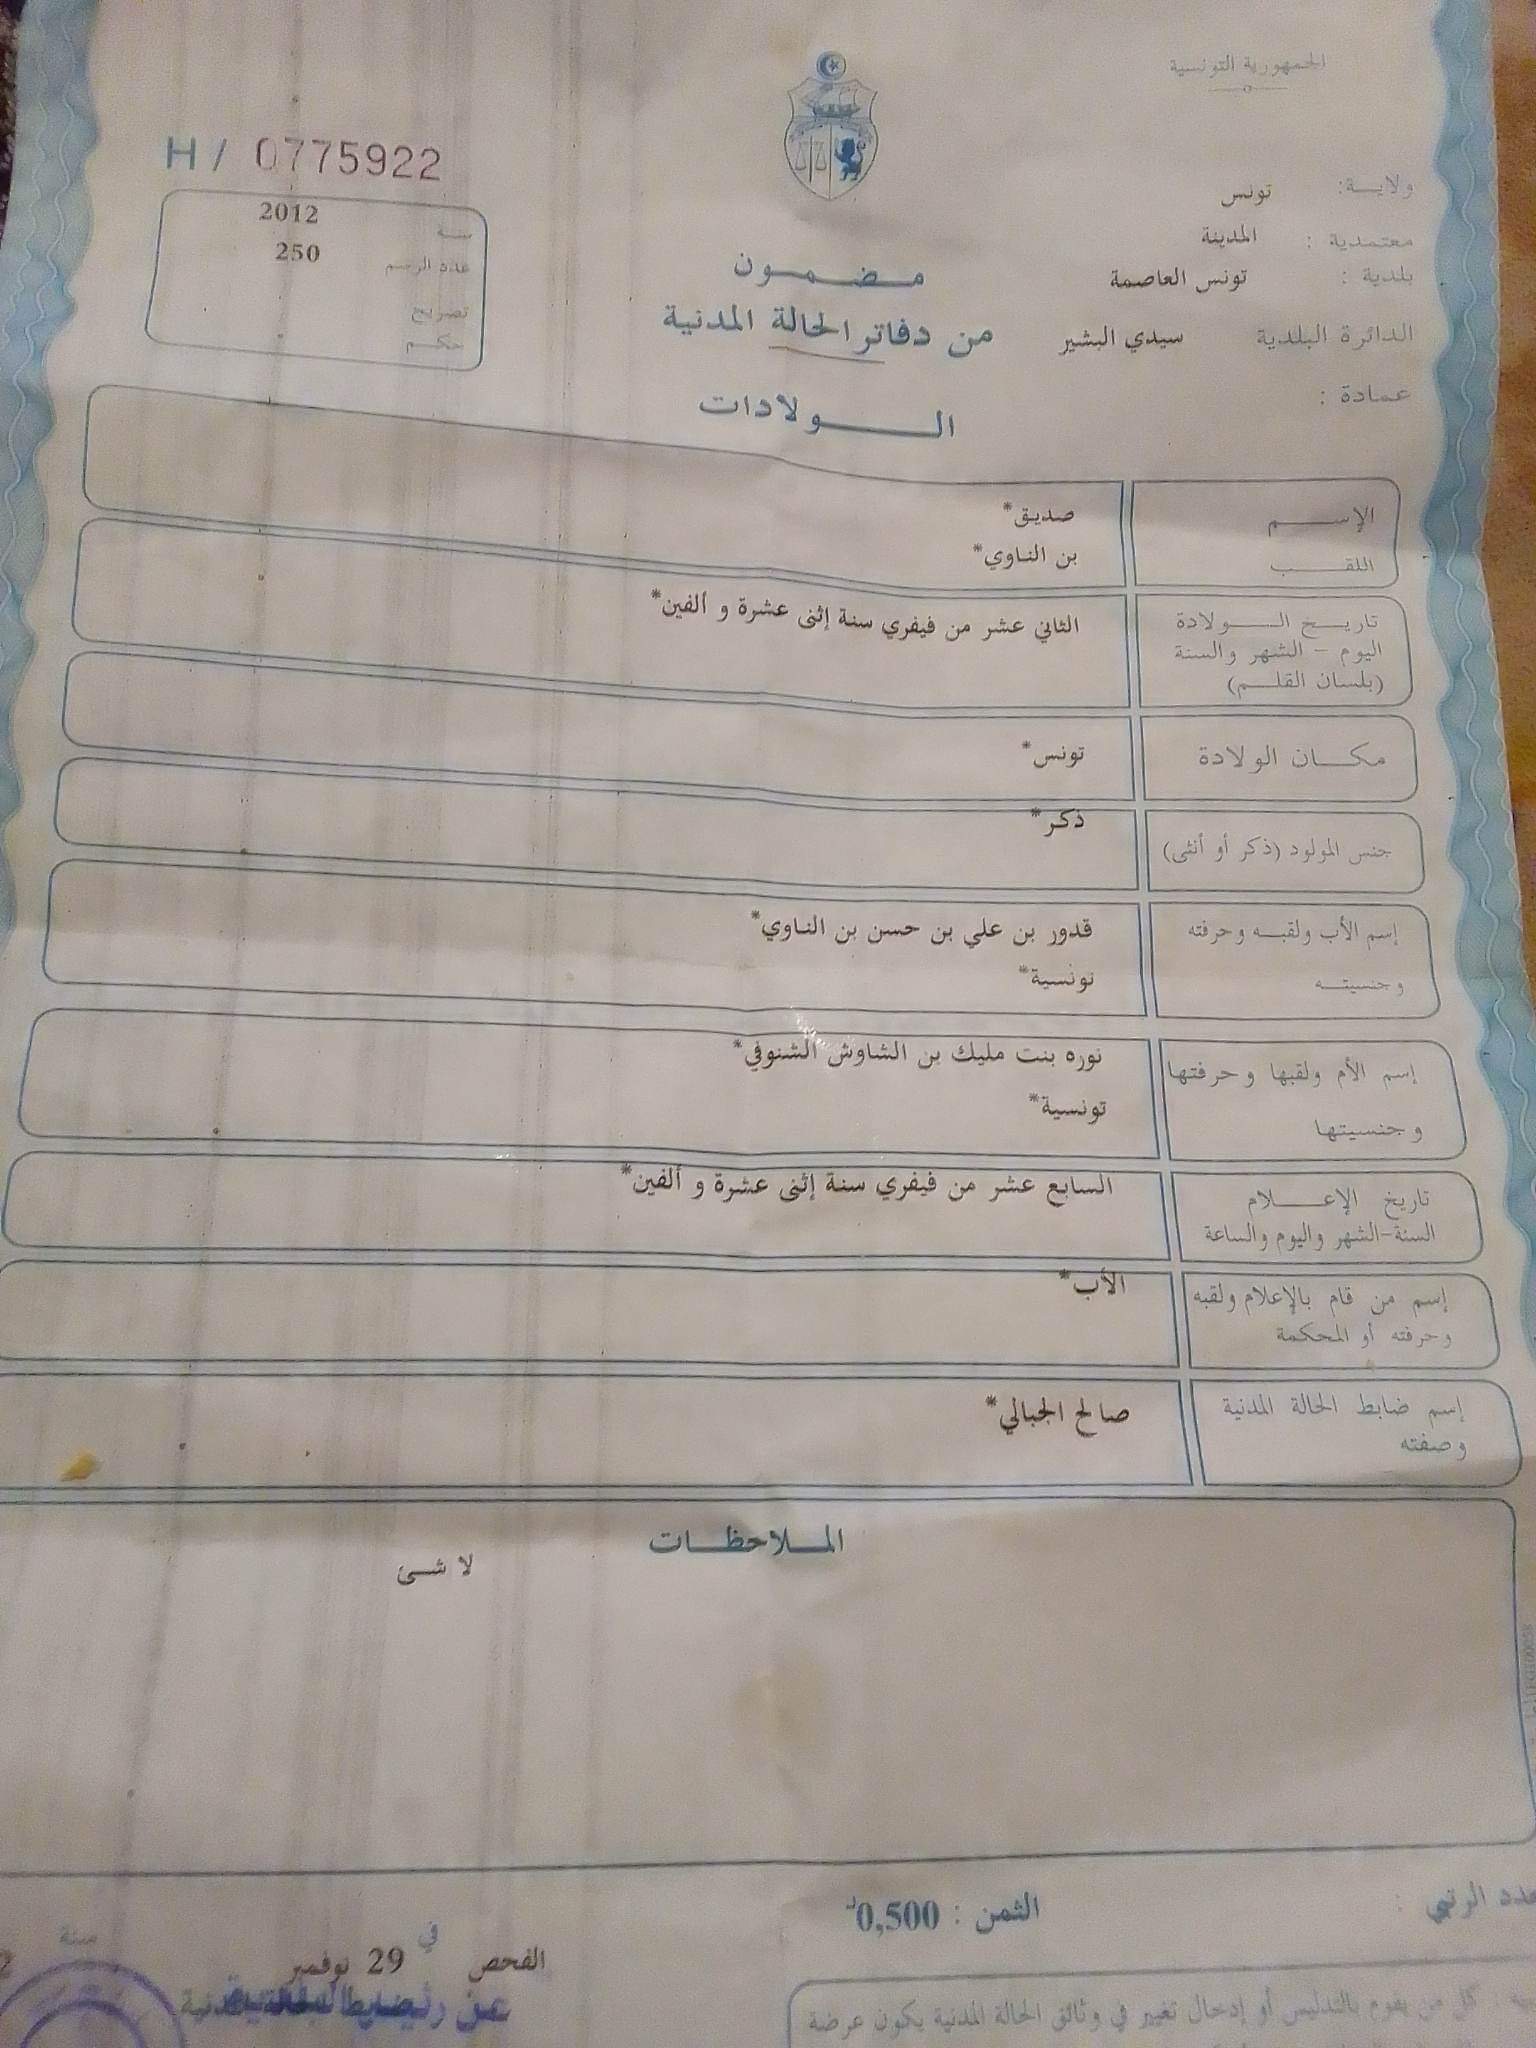 الجمهورية التونسية
ولاية: تونس
معتمدية : المدينة
بلدية : تونس العاصمة
الدائرة البلدية سيدي البشير
عمادة :
H / 0775922
سنة 2012
عدد الرسم 250
تصريح
حكم
مضمون
من دفاتر الحالة المدنية
الولادات
الإسم صديق*
اللقب بن الناوي*
تاريخ الولادة
اليوم - الشهر والسنة
(بلسان القلم)
الثاني عشر من فيفري سنة إثنى عشرة و ألفين*
مكان الولادة تونس*
جنس المولود (ذكر أو أنثى) ذكر*
إسم الأب ولقبه وحرفته قدور بن علي بن حسن بن الناوي*
وجنسيته تونسية*
إسم الأم ولقبها وحرفتها نوره بنت مليك بن الشاوش الشنوفي*
وجنسيتها تونسية*
تاريخ الإعلام
السنة-الشهر واليوم والساعة
السابع عشر من فيفري سنة إثنى عشرة و ألفين*
إسم من قام بالإعلام ولقبه
وحرفته أو المحكمة
الأب*
إسم ضابط الحالة المدنية
وصفته
صالح الجبالي*
الملاحظات
لا شئ
عدد الرتبي :
الثمن : 0,500د
الفحص في 29 نوفمبر سنة
ضابط الحالة المدنية
كل من يقوم بالتدليس أو إدخال تغيير في وثائق الحالة المدنية يكون عرضة